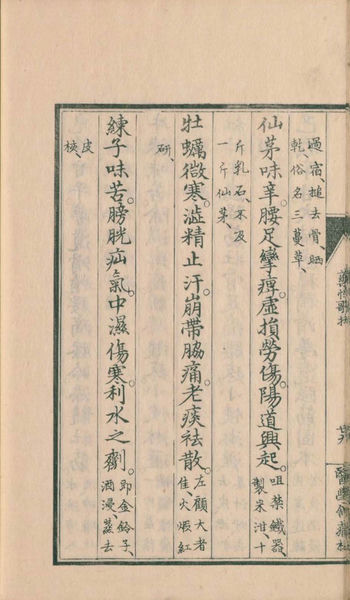 過宿、搥去骨、晒
乾、俗名三蔓草、
仙茅味辛。腰足攣痺。虛損勞傷。陽道興起。
咀禁鐵器、
製米泔、十
斤乳石、不及
一斤仙茅、
牡蠣微寒。澁精止汗。崩帶脇痛。老痰祛散。
左顧大者
佳、火煅紅
研、
練子味苦。膀胱疝氣。中濕傷寒。利水之劑。
即金鈴子、
酒浸、蒸去
皮
核、